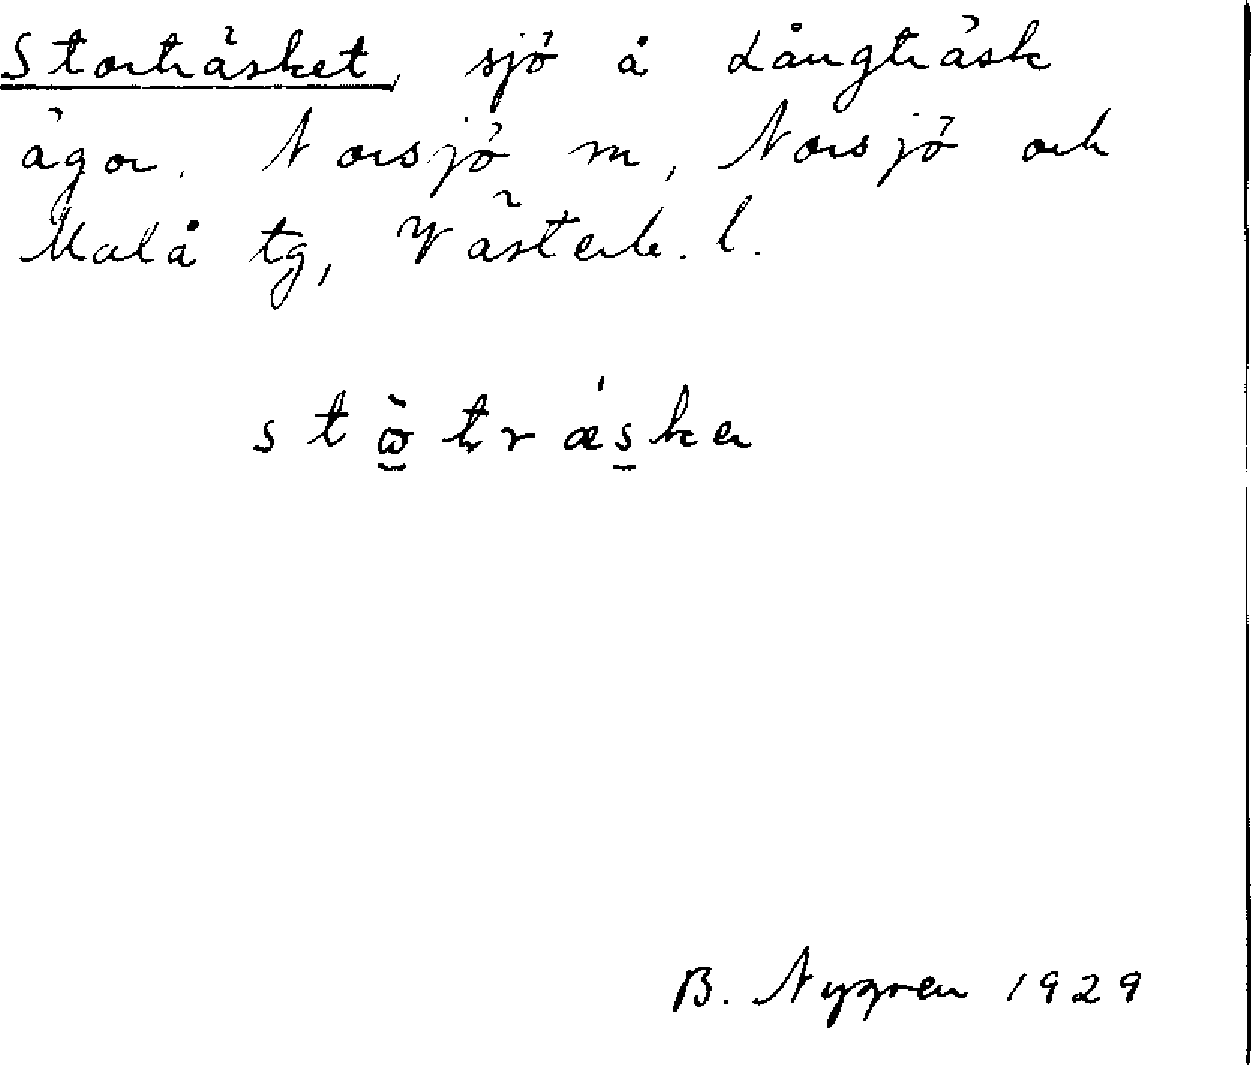 Storträsket, sjö å Långträsk
ägor. Norsjö sn, Norsjö och
Malå tg, Västerb. l.
stὼträ́sken
B. Nygren 1929